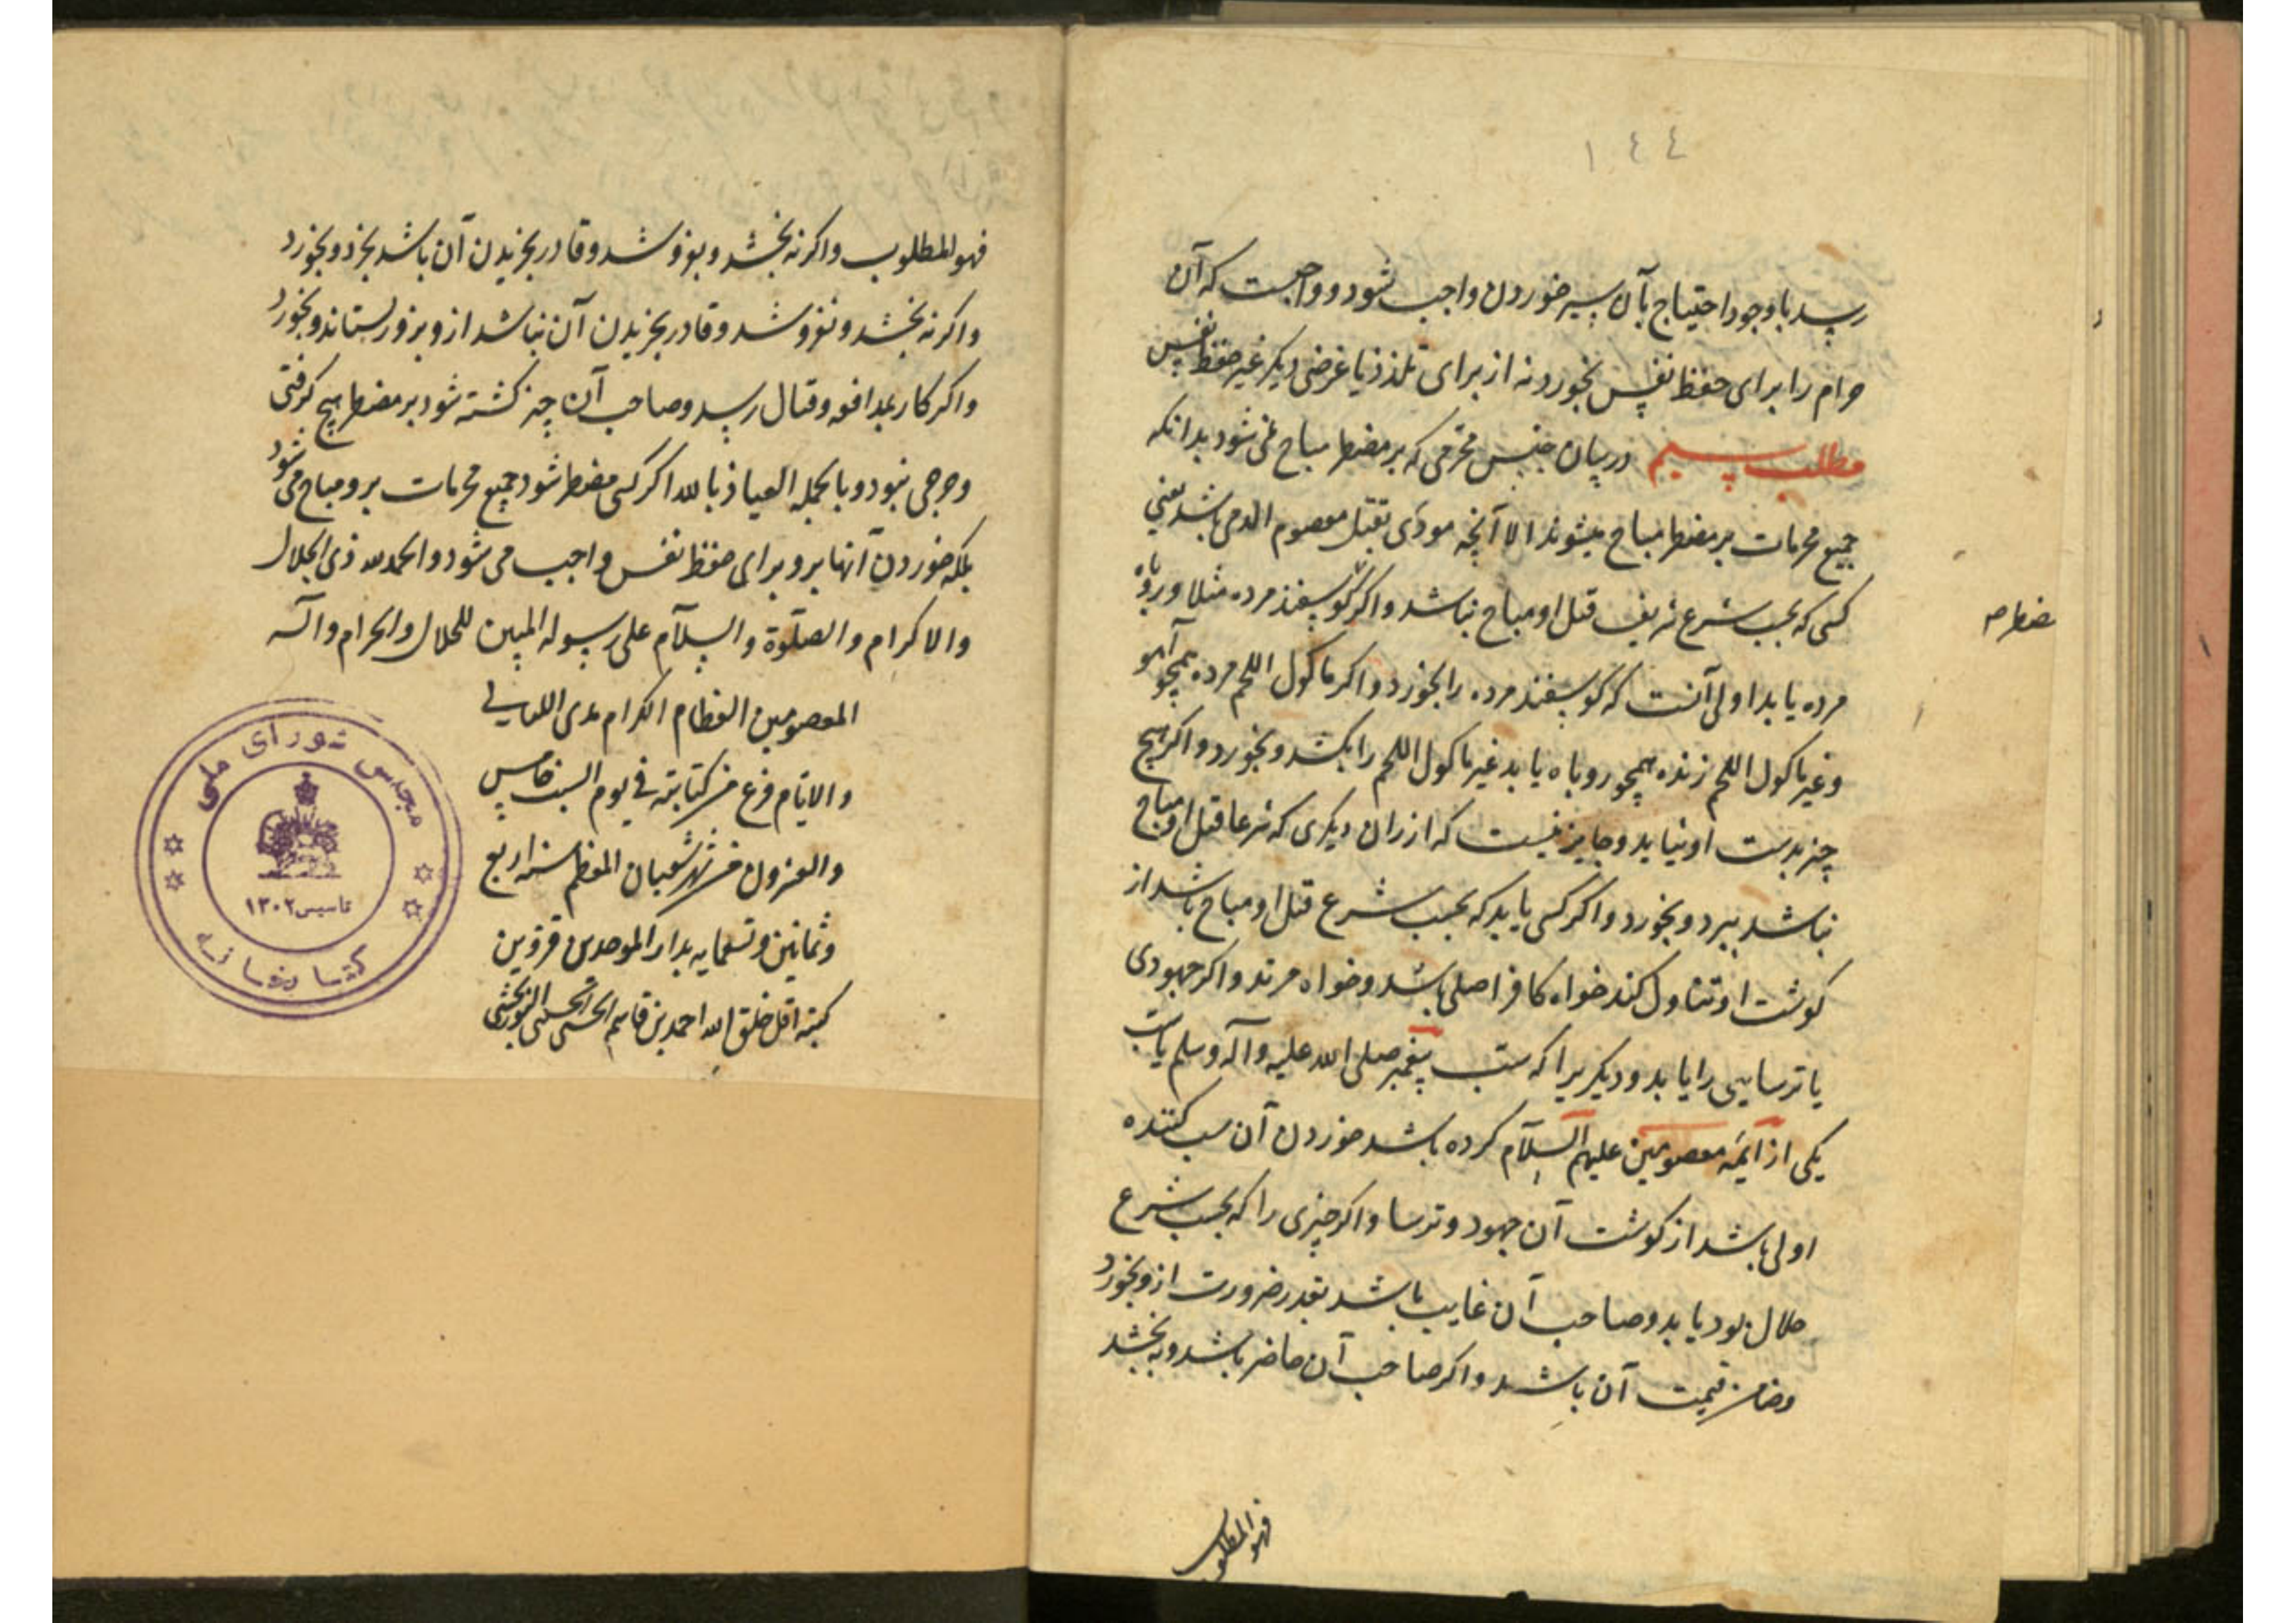 ١٤٤
رسد با وجود احتیاج بآن سیر خوردن واجب شود و واجبست که آن
حرام را برای حفظ نفس بخورد نه از برای تلذذ یا غرضی دیکر غیر حفظ نفس
مطلب سیم در بیان جنس محرمی که بر مضطر مباح می شود بدانکه
جمیع محرمات بر مضطر مباح میشوند الا آنچه مودی بقتل معصوم الدمی باشد یعنی
کسی که بحسب شرع شریف قتل او مباح نباشد و اکر کوسفند مرده مثلا و روباه
مضطر صه
مرده یابد اولی آنست که کوسفند مرده را بخورد و اکر ماکول اللحم مرده همچو آهو
و غیر ماکول اللحم زنده همچو روباه یابد غیر ماکول اللحم را بکشد و بخورد و اکر هیچ
چیز بدست او نیاید و جایز نیست که از ران دیکری که شرعا قتل او مباح
نباشد ببرد و بخورد و اکر کسی یابد که بحسب شرع قتل او مباح باشد از
کوشت او تناول کند خواه کافر اصلی باشد و خواه مرتد و اکر جهودی
یا ترسایی را یابد و دیکریرا که سب پیغمبر صلی الله علیه و آله و سلم یا سب
یکی از ائمه معصومین علیهم السلام کرده باشد خوردن آن سب کننده
اولی باشد از کوشت آن جهود و ترسا و اکر چیزی را که بحسب شرع
حلال بود یابد و صاحب آن غایب باشد بقدر ضرورت ازو بخورد
و ضامن قیمت آن باشد و اکر صاحب آن حاضر باشد و ببخشد
فهو المطلوب
فهو المطلوب و اکر نه بخشد و بفروشد و قادر بخریدن آن باشد بخرد و بخورد
و اکر نه بخشد و نفروشد و قادر بخریدن آن نباشد ازو بزور بستاند و بخورد
و اکر کار بمدافعه و قتال رسد و صاحب آن چیز کشته شود بر مضطر هیچ کرفتی
و حرجی نبود و بالجمله العیاذ بالله اکر کسی مضطر شود جمیع محرمات برو مباح می شود
بلکه خوردن آنها برو برای حفظ نفس واجب می شود و الحمد لله ذی الجلال
والاکرام والصلوة والسلام علی رسوله المبین للحلال والحرام وآله
المعصومین العظام الکرام مدی اللیالی
والایام فرغ من کتابته فی یوم السبت خامس
والعشرون من شهر شعبان المعظم سنه اربع
وثمانین وتسعمایه بدار الموحدین قزوین
کتبه اقل خلق الله احمد بن قاسم الحسنی الحسینی النوربخشی
مجلس شورای ملی
تاسیس ۱۳۰۲
کتابخانه